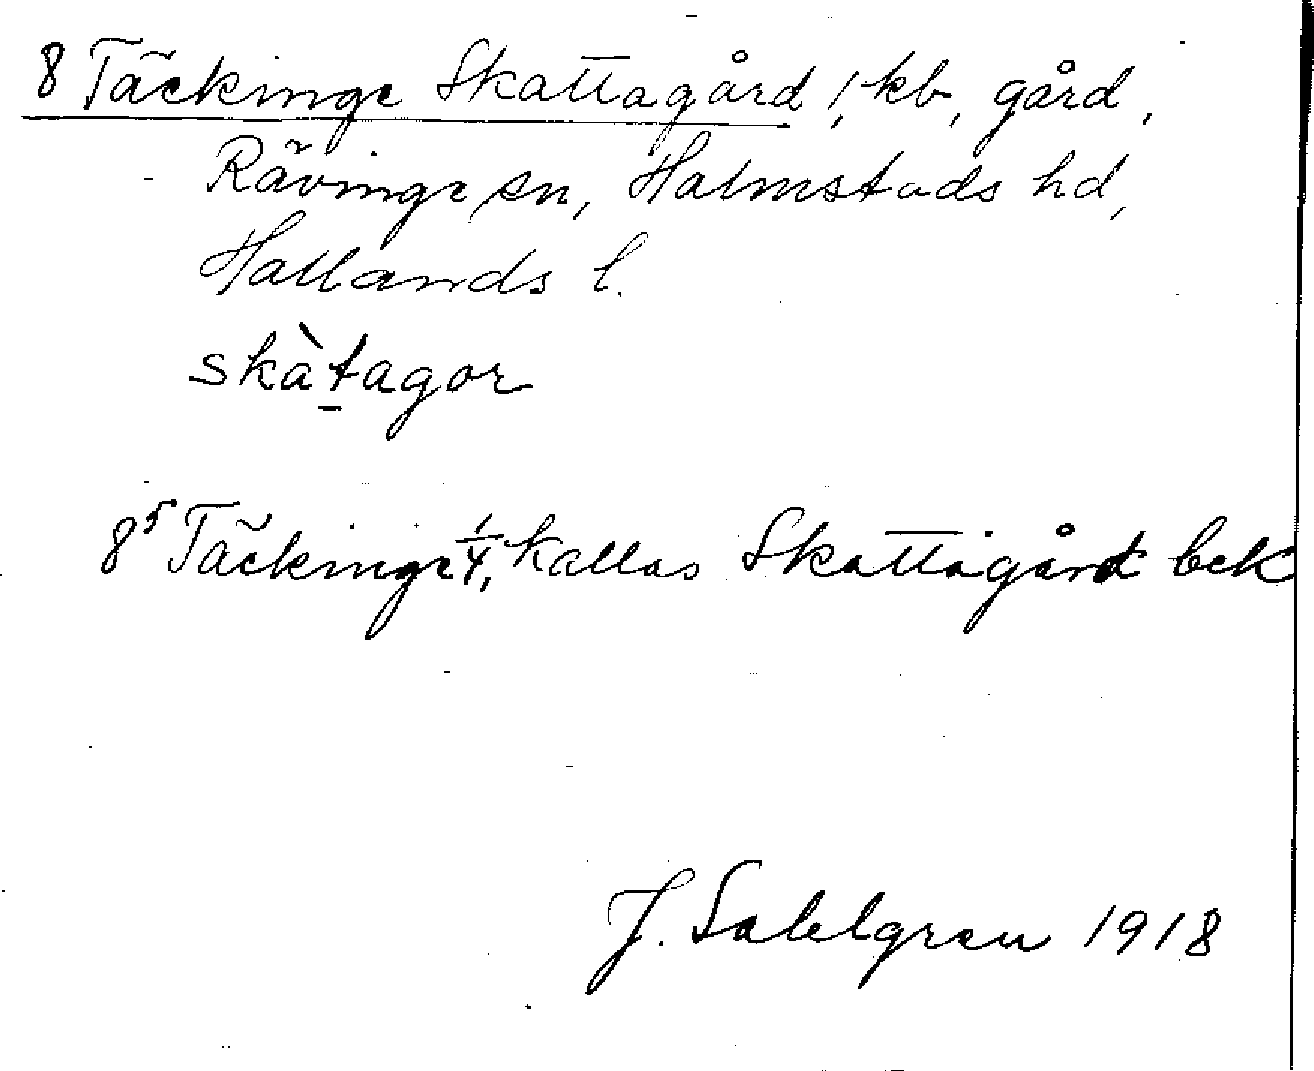 8 Täckinge Skattagård !, kb, gård,
Rävinge sn, Halmstads hd,
Hallands l.
skàt̠agor
8⁵ Täckinge 1/4, kallas Skattagård bek
J. Sahlgren 1918